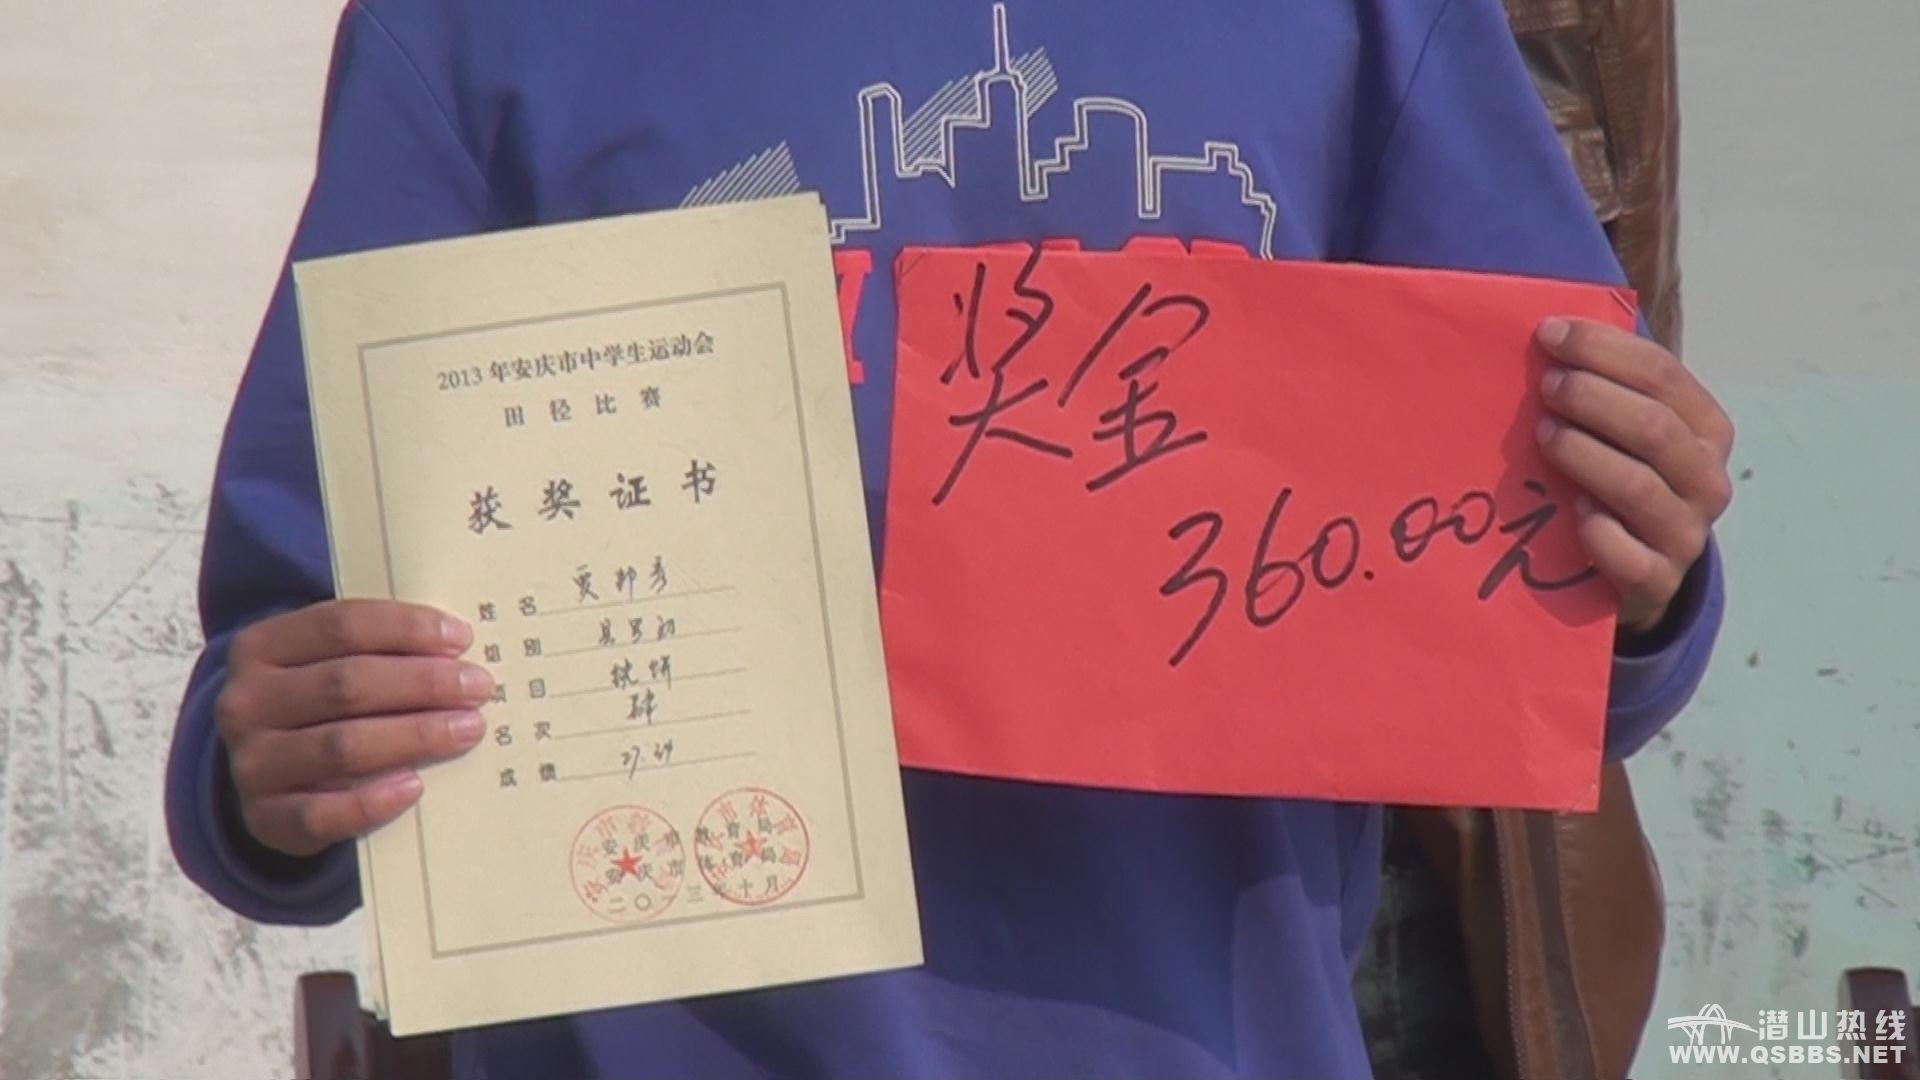 2013年安庆市中学生运动会
田径比赛
获奖证书
姓名 贾邦彦
组别 县男初
项目 铁饼
名次 肆
成绩
安庆市教育局
安庆市体育局
二〇一三年十月
奖金
360.00元
潜山热线
WWW.QSBBS.NET